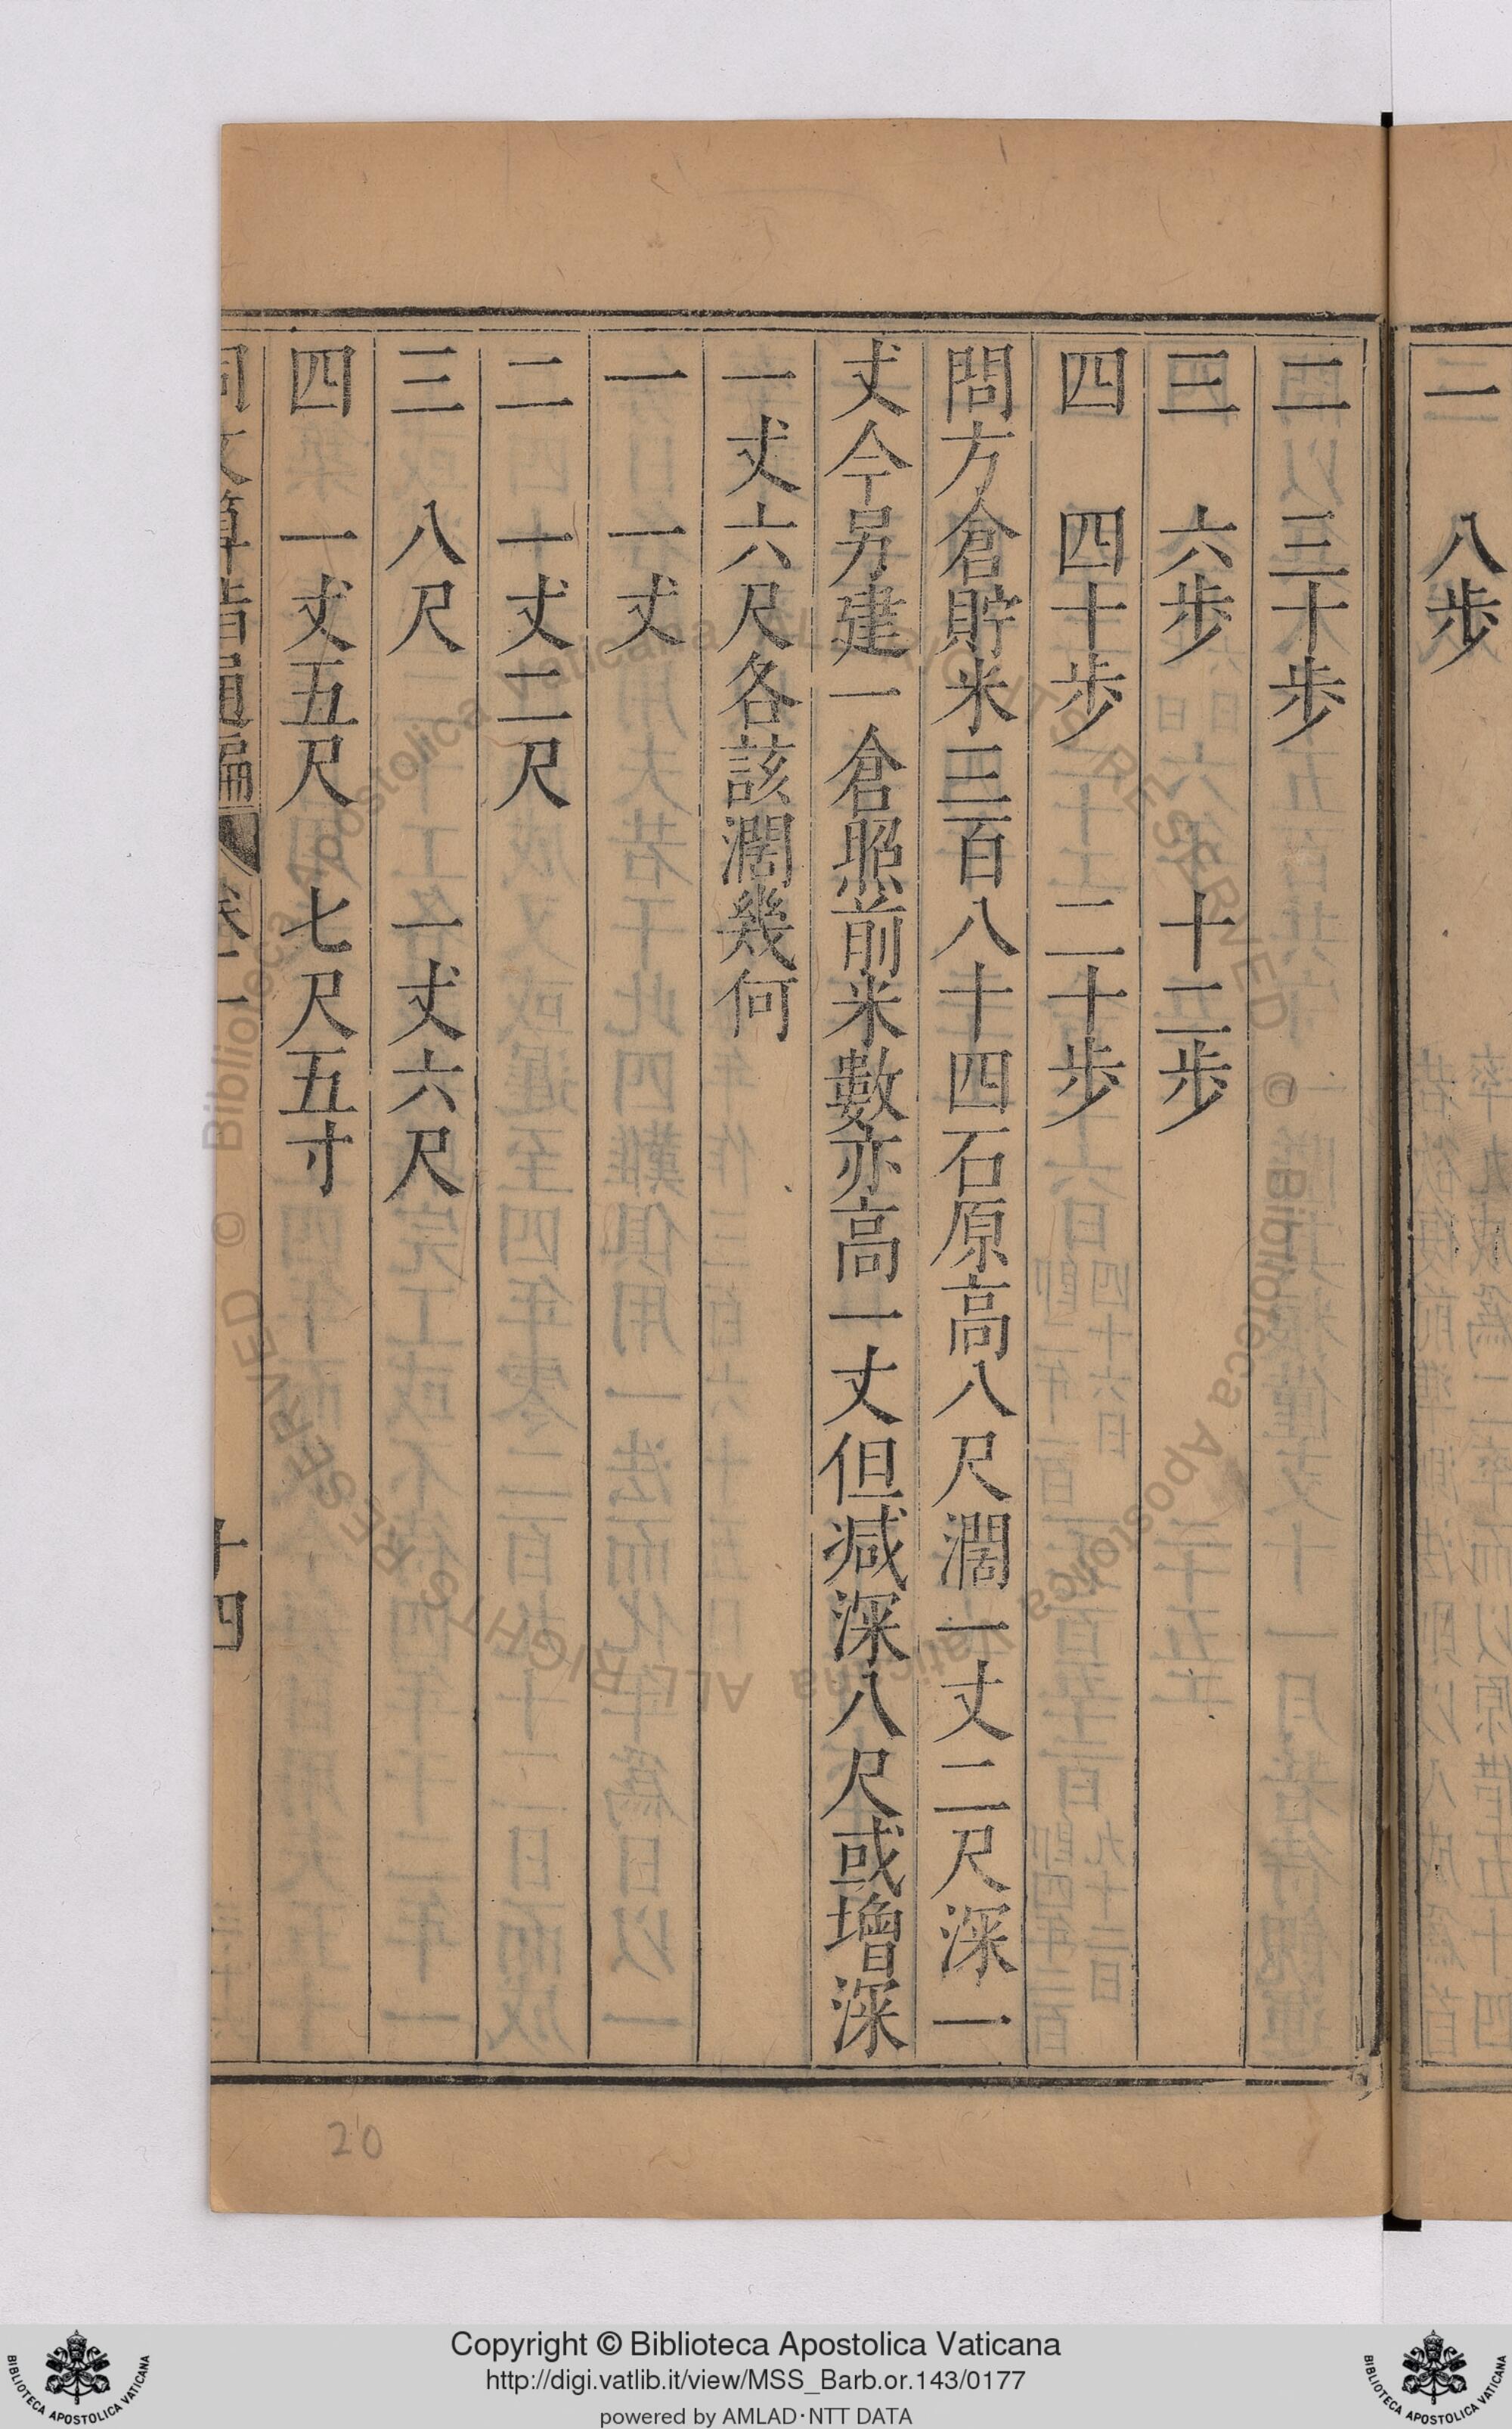 一　八步
二　三十步
三　六步　十二步
四　四十步　二十步
問方倉貯米三百八十四石原高八尺濶一丈二尺深一
丈今另建一倉照前米數亦高一丈但减深八尺或增深
一丈六尺各該濶幾何
一　一丈
二　一丈二尺
三　八尺　一丈六尺
四　一丈五尺　七尺五寸
同文算指通編　卷二　十四
20
Copyright © Biblioteca Apostolica Vaticana
http://digi.vatlib.it/view/MSS_Barb.or.143/0177
powered by AMLAD·NTT DATA
BIBLIOTECA APOSTOLICA VATICANA
BIBLIOTECA APOSTOLICA VATICANA
© Biblioteca Apostolica Vaticana ALL RIGHTS RESERVED © Biblioteca Apostolica Vaticana ALL RIGHTS RESERVED